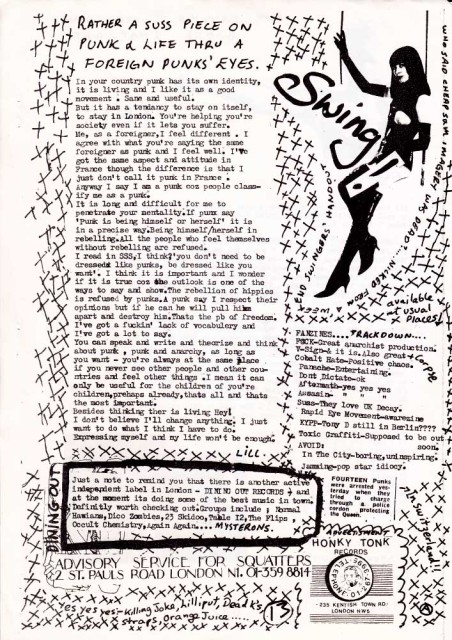 RATHER A SUSS PIECE ON
PUNK & LIFE THRU A
FOREIGN PUNKS' EYES.
In your country punk has its own identity,
it is living and I like it as a good
movement . Sane and useful.
But it has a tendancy to stay on itself,
to stay in London. You're helping you're
society even if it lets you suffer.
Me, as a foreigner,I feel different . I
agree with what you're saying the same
foreigner as punk and I feel well. I've
got the same aspect and attitude in
France though the difference is that I
just don't call it punk in France .
Anyway I say I am a punk coz people class-
ify me as a punk.
It is long and difficult for me to
penetrate your mentality.If punx say
'Punk is being himself or herself' it is
in a precise way.Being himself/herself in
rebelling.All the people who feel themselves
without rebelling are refused.
I read in SSS,I think'you don't need to be
dressed like punks, be dressed like you
want'. I think it is important and I wonder
if it is true coz the outlook is one of the
ways to say and show.The rebellion of hippies
is refused by punks.A punk say I respect their
opinions but if he can he will pull him
apart and destroy him.Thats the pb of freedom.
I've got a fuckin' lack of vocabulary and
I've got a lot to say.
You can speak and write and theorize and think
about punk , punk and anarchy, as long as
you want - you're always at the same place
if you never see other people and other cou-
ntries and feel other things . I mean it can
only be useful for the children of you're
children,prehaps already,thats all and thats
the most important.
Besides thinking ther is living Hey!
I don't believe I'll change anything, I just
want to do what I think I have to do.
Expressing myself and my life won't be enough.
LILL.
Swing
WHO SAID CHEAP SEX IMAGES?
available
at usual
places!
FANZINES.... TRACKDOWN...
POCK-Great anarchist production.
V-Sign-& it is.Also great
Cobalt Hate-Positive chaos.
Panache-Entertaining.
Dont Dictate-ok
Aftermath-yes yes yes
Assasin- " " "
Suss-They love UK Decay.
Rapid Eye Movement-awarezine
KYPP-Tony D still in Berlin????
Toxic Graffiti-Supposed to be out
soon.
AVOID:
In The City-boring,uninspiring.
Jamming-pop star idiocy.
DINING-OUT
Just a note to remind you that there is another active
independent label in London - DINING OUT RECORDS - and
at the moment its doing some of the best music in town.
Definitly worth checking out.Groups include ; Normal
Hawaians, Disco Zombies, 23 Skidoo, Table 12, The Flips
Occult Chemistry,Again Again.... MYSTERONS.
FOURTEEN Punks
were arrested yes-
terday when they
tried to charge
through a police
cordon protecting
the Queen.
In Switzerland!!!
ADVERTISEMENT
HONKY TONK
RECORDS
235 KENTISH TOWN RD
LONDON NW5
ADVISORY SERVICE FOR SQUATTERS
ST. PAULS ROAD LONDON N1. 01-359 8814
Yes yes yes-Killing Joke, Lilliput, Dead K's
straps, orange Juice.....
13